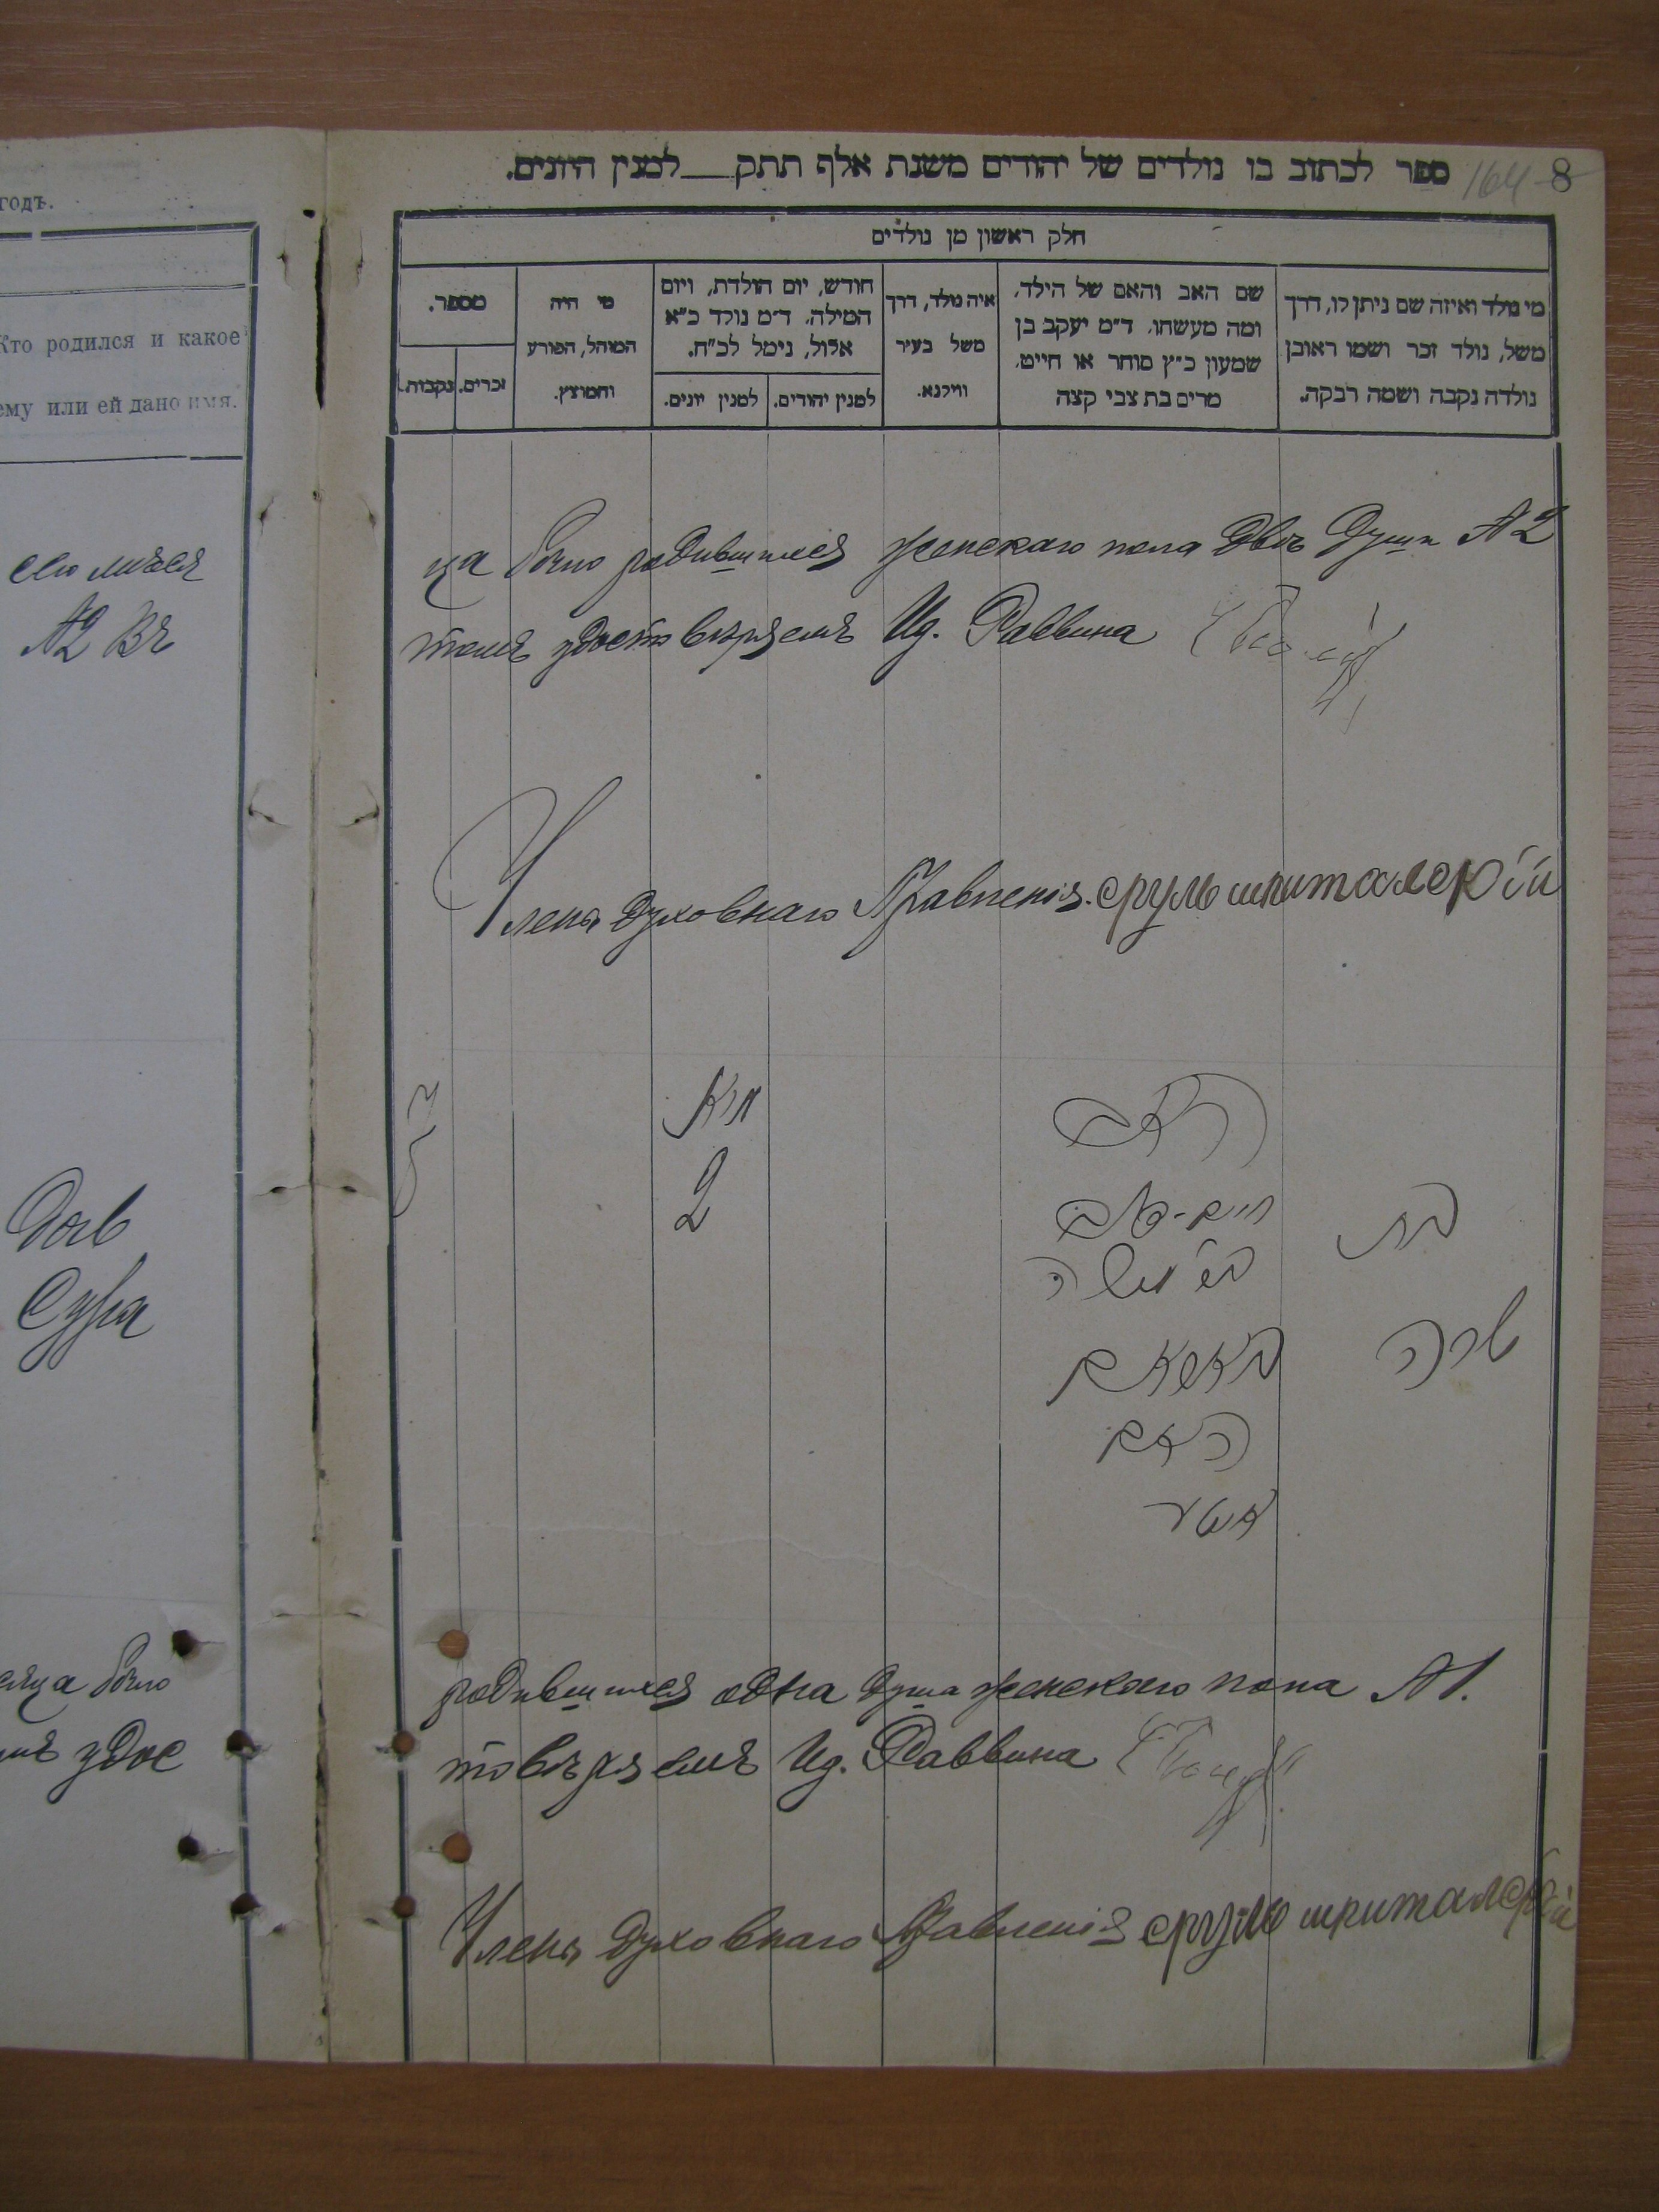 годъ.
Кто родился и какое
ему или ей дано имя.
сего мѣся
№2 въ
дочь
Сура
сяца было
удос
164 8
ספר לכתוב בו נולדים של יהודים משנת אלף תתק___למנין היונים.
חלק ראשון מן נולדים
מי נולד ואיזה שם ניתן לו, דרך
משל, נולד זכר ושמו ראובן
נולדה נקבה ושמה רבקה.
שם האב והאם של הילד,
ומה מעשהו. ד״מ יעקב בן
שמעון כ״ץ סוחר או חייט,
מרים בת צבי קצה
איה נולד, דרך
משל בעיר
ווילנא.
חודש, יום הולדת, ויום
המילה. ד״מ נולד כ״א
אלול, נימל לכ״ח.
למנין יהודים.
למנין יונים.
מי היה
המוהל, הפורע
והמוצץ.
מספר.
זכרים.
נקבות.
ца было родившихся женскаго пола двѣ души №2
томъ удостовѣряемъ Ид. Раввина
Членъ духовнаго Правленія. сруль шпиталскій
מאי
2
בת
שרה
родившихся одна душа женскаго пола №1.
товѣряемъ Ид. Раввина
Членъ духовнаго Правленія сруль шпиталскій